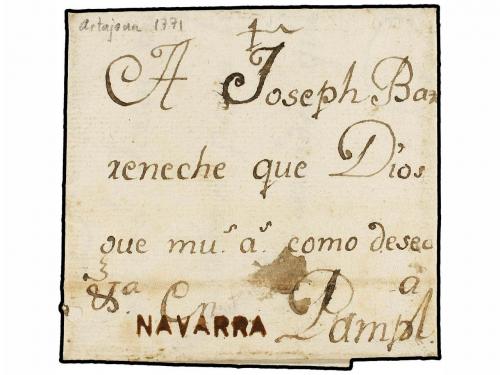 Artajona 1771
A Joseph Bar
reneche que Dios
gue mu.s a.s como deseo
&.a En Pampl.a
NAVARRA